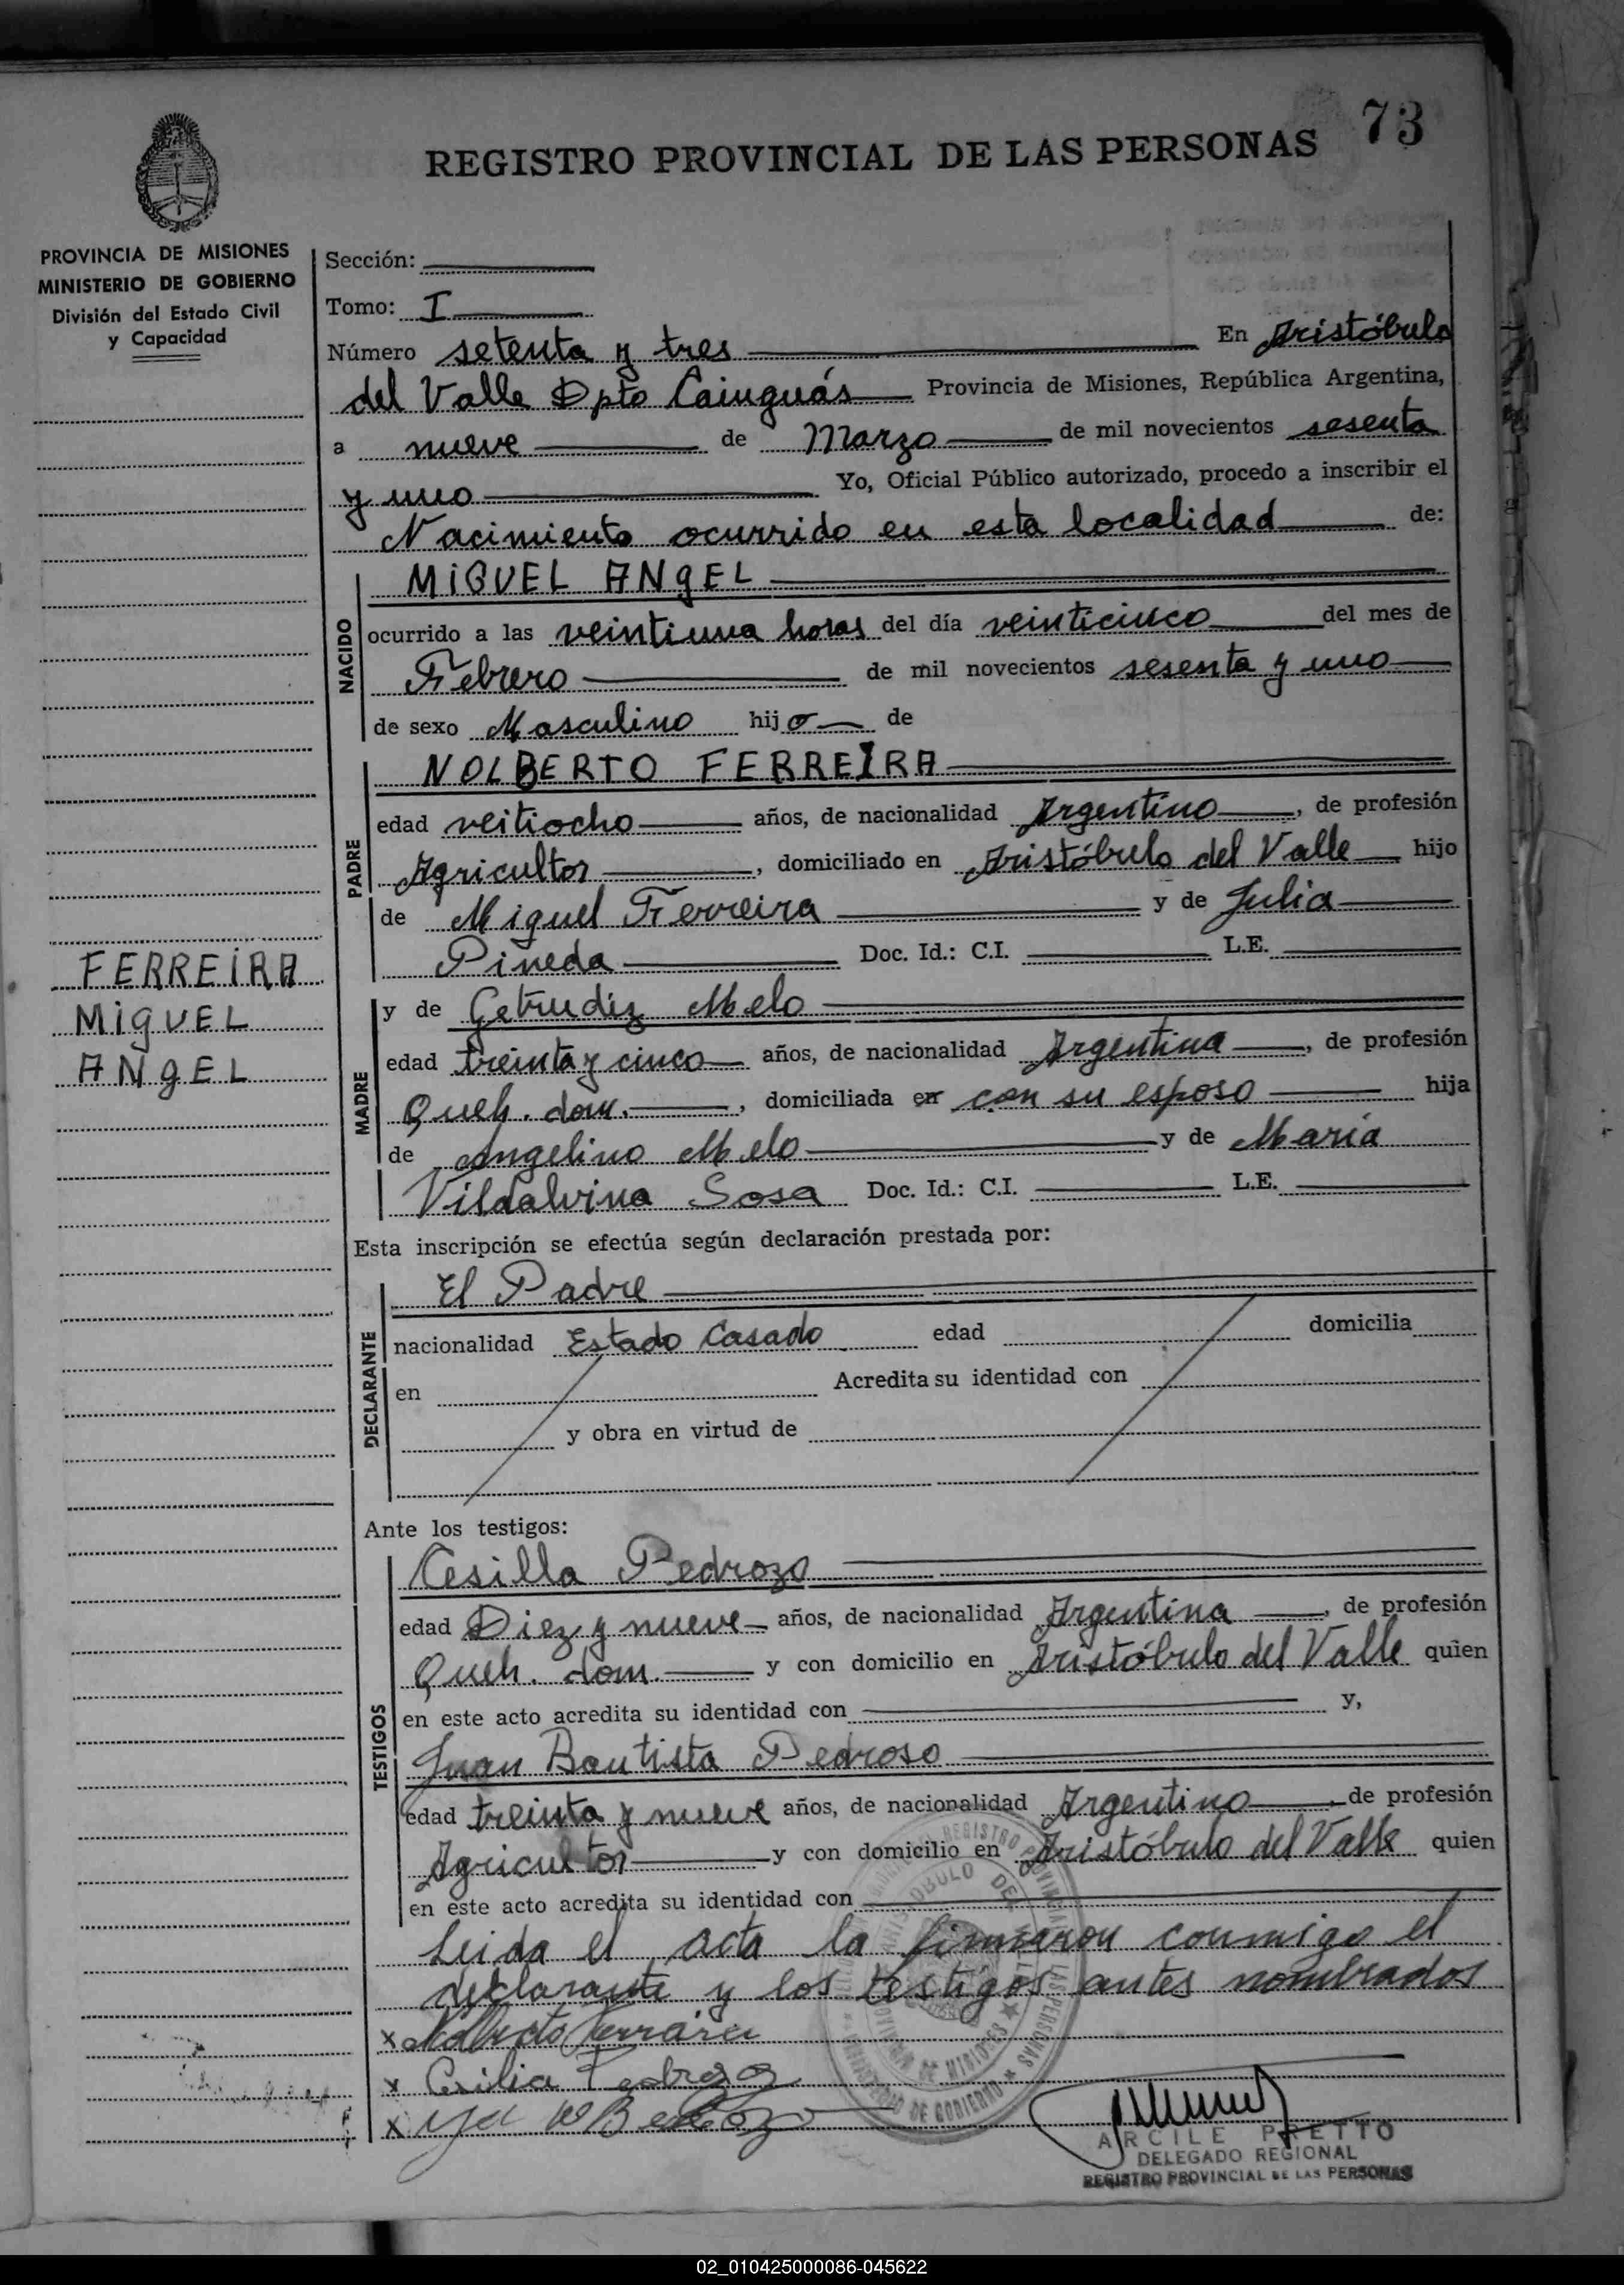 73
REGISTRO PROVINCIAL DE LAS PERSONAS
PROVINCIA DE MISIONES
MINISTERIO DE GOBIERNO
División del Estado Civil
y Capacidad
Sección:
Tomo: I
Número setenta y tres En Aristóbulo
del Valle Dpto Cainguás Provincia de Misiones, República Argentina,
a nueve de Marzo de mil novecientos sesenta
y uno Yo, Oficial Público autorizado, procedo a inscribir el
Nacimiento ocurrido en esta localidad de:
NACIDO
MIGUEL ANGEL
ocurrido a las veintiuna horas del día veinticinco del mes de
Febrero de mil novecientos sesenta y uno
de sexo Masculino hijo de
PADRE
NOLBERTO FERREIRA
edad veitiocho años, de nacionalidad Argentino, de profesión
Agricultor, domiciliado en Aristóbulo del Valle hijo
de Miguel Ferreira y de Julia
Pineda Doc. Id.: C.I. L.E.
FERREIRA
MIGUEL
ANGEL
MADRE
y de Getrudiz Melo
edad treinta y cinco años, de nacionalidad Argentina, de profesión
Queh. dom., domiciliada en con su esposo hija
de Angelino Melo y de María
Vildalvina Sosa Doc. Id.: C.I. L.E.
Esta inscripción se efectúa según declaración prestada por:
DECLARANTE
El Padre
nacionalidad Estado Casado edad domicilia
en Acredita su identidad con
y obra en virtud de
Ante los testigos:
TESTIGOS
Cesilla Pedrozo
edad Diez y nueve años, de nacionalidad Argentina, de profesión
Queh. dom. y con domicilio en Aristóbulo del Valle quien
en este acto acredita su identidad con y,
Juan Bautista Pedroso
edad treinta y nueve años, de nacionalidad Argentino de profesión
Agricultor y con domicilio en Aristóbulo del Valle quien
en este acto acredita su identidad con
Leida el acta la firmaron conmigo el
declarante y los testigos antes nombrados
x Nolberto Ferreira
x Cesilia Pedrozo
x
ARCILE PRETTO
DELEGADO REGIONAL
REGISTRO PROVINCIAL DE LAS PERSONAS
02_010425000086-045622